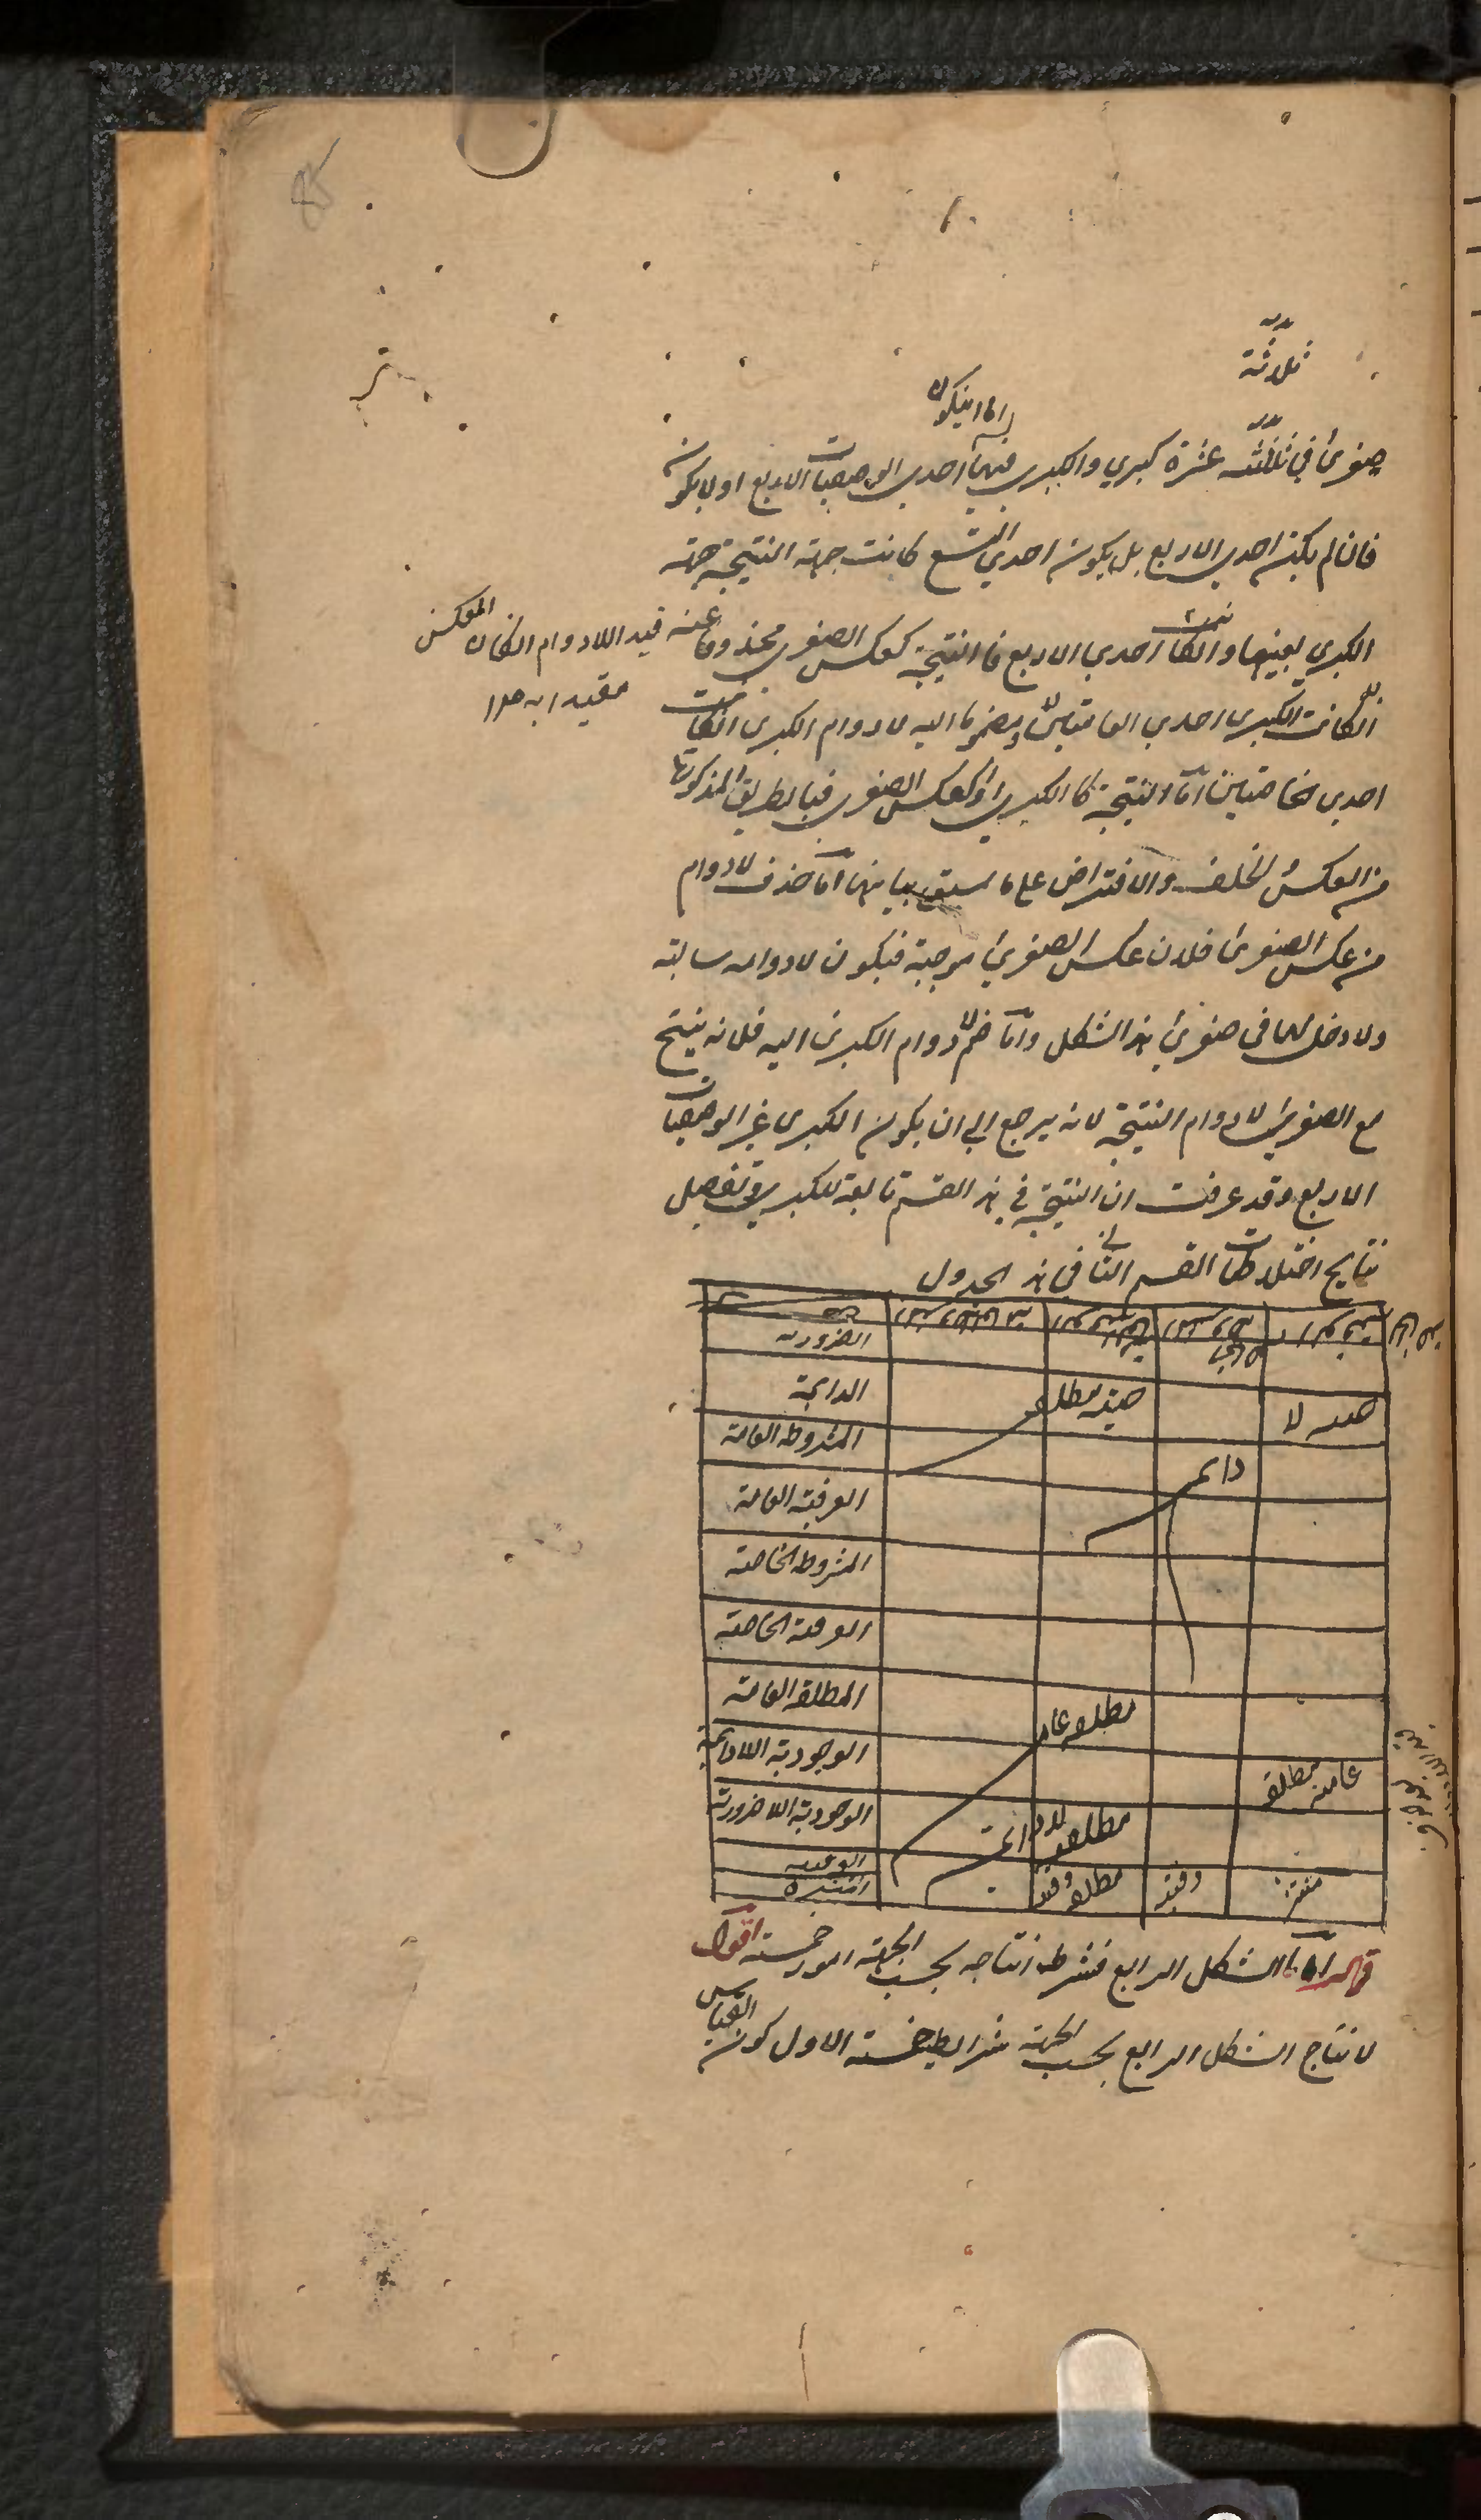 ثلاثة
اما ان يكون
صغرى في ثلثة عشرة كبري والكبرى فيها احدى الوصفيات الاربع او لا يكون
فان لم يكن احدى الاربع بل يكون احدي التسع كانت جهة النتيجة جهة
الكبري بعينها وانكانت احدي الاربع فالنتيجة كعكس الصغرى محذوفا عنه قيد اللادوام انكان العكس
مقيدا به
انكانت الكبرى احدي العامتين ومضموما اليه لادوام الكبرى انكانت
احدي الخاصتين اما النتيجة كالكبرى او كعكس الصغرى فبالطريق المذكورة
من العكس والخلف والافتراض على ما سبق بيانها اما حذف لادوام
من عكس الصغرى فلان عكس الصغرى موجبة فيكون لادوامه سالبة
ولا دخل لها في صغرى هذا الشكل واما ضم لادوام الكبرى اليه فلانه ينتج
مع الصغرى لادوام النتيجة لانه يرجع الى ان يكون الكبرى غير الوصفيات
الاربع وقد عرفت ان النتيجة في هذا القسم تابعة للكبرى وتفصيل
نتايج اختلاطات القسم الثاني في هذا الجدول
الضرورية
الدائمة
حينية مطلقة
لا
المشروطة العامة
دائمة
العرفية العامة
المشروطة الخاصة
العرفية الخاصة
المطلقة العامة
مطلقة عامة
الوجودية اللادائمة
عامة مطلقة
الوجودية اللاضرورية
مطلقة لادائمة
الوقتية
المنتشرة
مطلقة وقتية
وقتية
منتشرة
قال اما الشكل الرابع فشرط انتاجه بحسب الجهة امور خمسة اقول
لانتاج الشكل الرابع بحسب الجهة شرايط خمسة الاول كون القياس